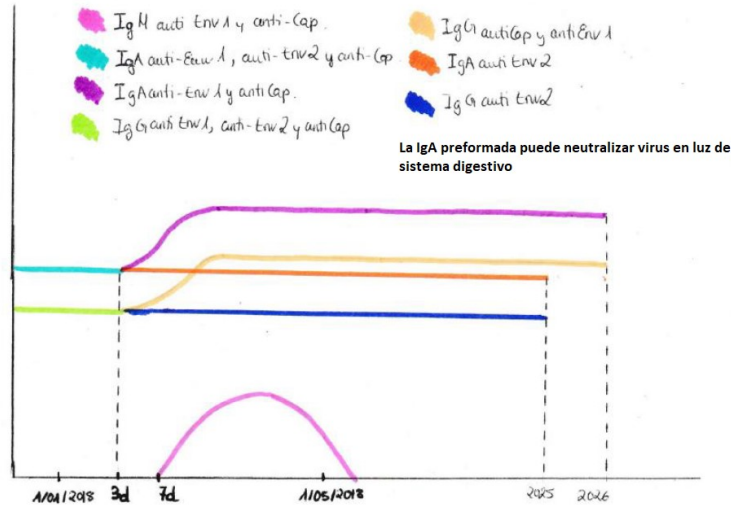 IgM anti Env1 y anti-Cap
IgA anti-Env1, anti-Env2 y anti-Cap
IgA anti-Env1 y anti Cap.
IgG anti Env1, anti-Env2 y anti Cap
IgG anti Cap y anti Env1
IgA anti Env2
IgG anti Env2
La IgA preformada puede neutralizar virus en luz de
sistema digestivo
1/01/2018 3d 7d 1/05/2018 2025 2026